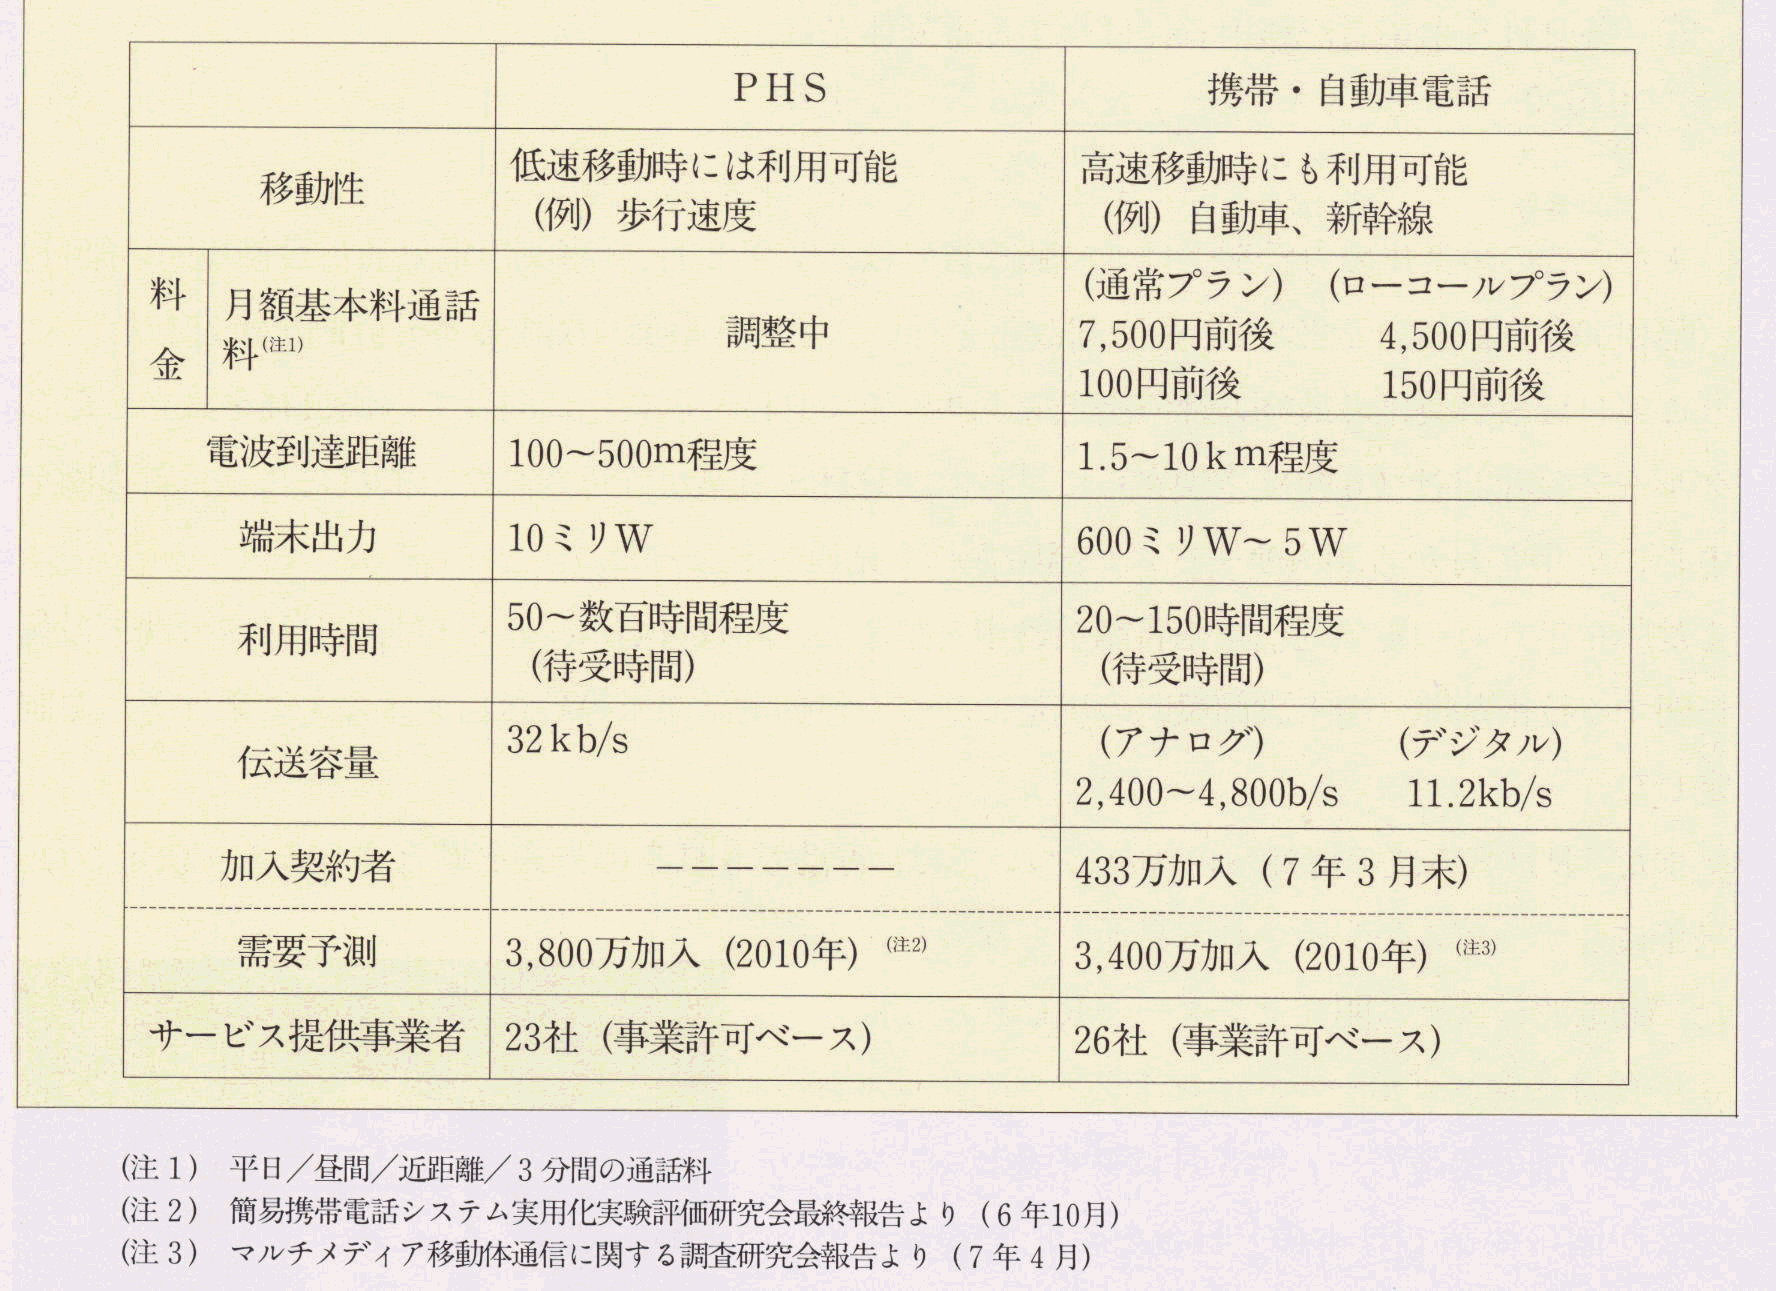 PHS 携帯・自動車電話
移動性
低速移動時には利用可能
(例) 歩行速度
高速移動時にも利用可能
(例) 自動車、新幹線
料金
月額基本料通話
料(注1)
調整中
(通常プラン) (ローコールプラン)
7,500円前後 4,500円前後
100円前後 150円前後
電波到達距離 100〜500m程度 1.5〜10km程度
端末出力 10ミリW 600ミリW〜5W
利用時間
50〜数百時間程度
(待受時間)
20〜150時間程度
(待受時間)
伝送容量
32kb/s
(アナログ) (デジタル)
2,400〜4,800b/s 11.2kb/s
加入契約者 ------- 433万加入 (7年3月末)
需要予測 3,800万加入 (2010年) (注2) 3,400万加入 (2010年) (注3)
サービス提供事業者 23社 (事業許可ベース) 26社 (事業許可ベース)
(注1) 平日/昼間/近距離/3分間の通話料
(注2) 簡易携帯電話システム実用化実験評価研究会最終報告より (6年10月)
(注3) マルチメディア移動体通信に関する調査研究会報告より (7年4月)